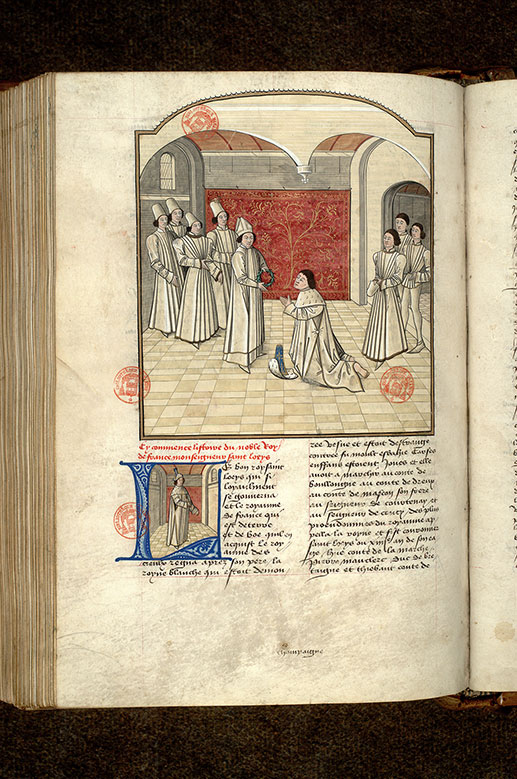 Cy commence listoire du noble Roy
de france monseigneur saint loeys
Le bon roy saint
loeys qui si
loyaulment
se gouverna
et le royaume
de france qui
est decede
et de boe quil en
acquist le roy
aume des
cieulx regna apres son pere. la
royne blanche qui estoit demou
ree vesve et estoit destrange
contree fu moult esbahie Car ses
enffans estoient Jones et elle
avoit a marchir au conte de
boullongne au conte de dreux
au conte de mascon son frere
au seigneur de courtenay et
au seigneur de coucy des plus
preudommes du royaume ap
pela la royne et fist couronner
saint loys ou xiiiie an de son ea
ge, hue conte de la marche
pierre mauclerc duc de bre
taigne et thiebaut conte de
champaigne